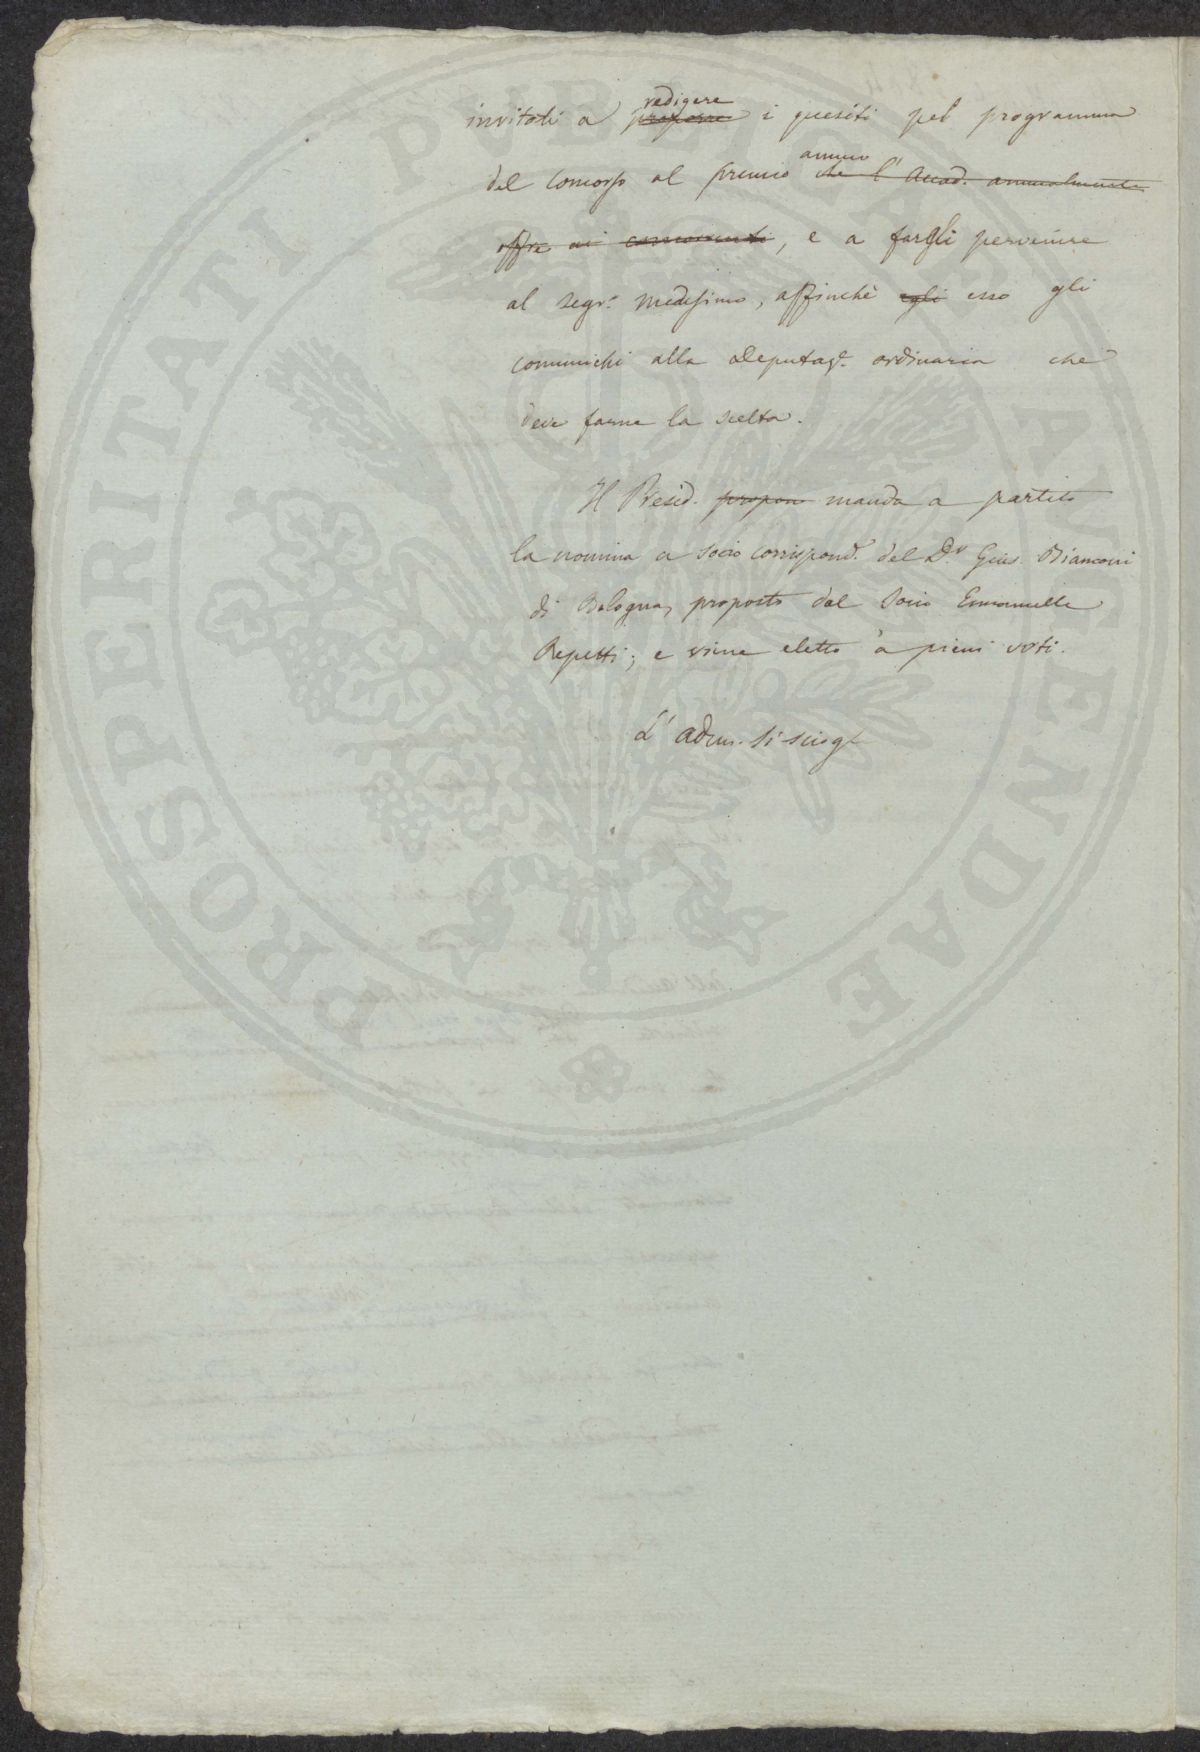 invitati a ~~proporre~~ redigere i quesiti pel programma
del concorso al premio annuo ~~che l'Accad. annualmente~~
~~offre ai concorrenti~~, e a fargli pervenire
al Segr.º medesimo, affinchè ~~egli~~ esso gli
comunichi alla Deputaz.e ordinaria che
deve farne la scelta.
Il Presid. ~~propon~~ manda a partito
la nomina a socio corrispond.e del D.r Gius. Bianconi
di Bologna, proposto dal Socio Emanuelle
Repetti; e viene eletto a pieni voti.
L' adun. si sciogl
PROSPERITATI PVBLICAE AVGENDAE